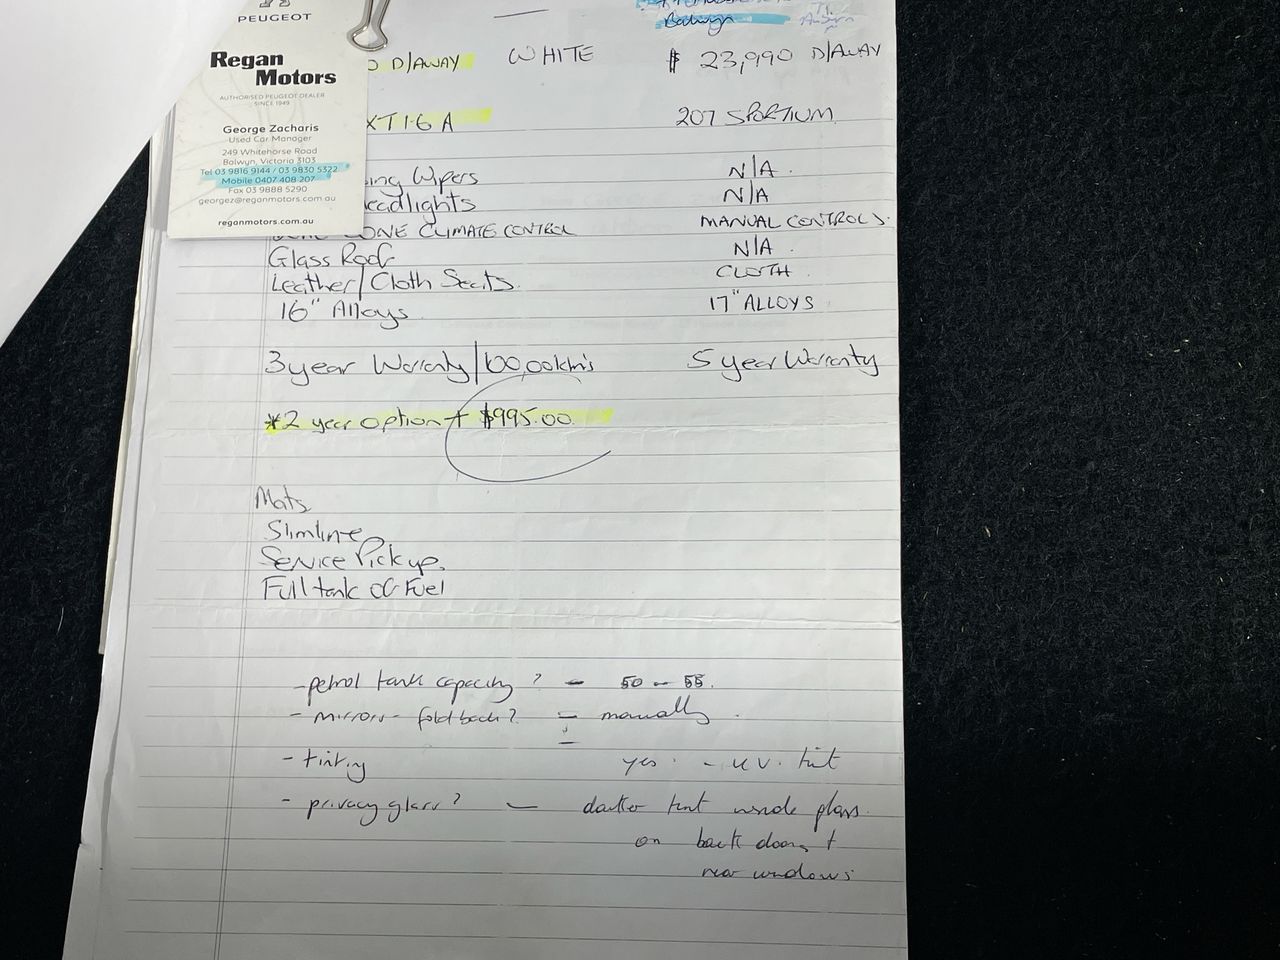 PEUGEOT
Regan
Motors
AUTHORISED PEUGEOT DEALER
SINCE 1949
George Zacharis
Used Car Manager
249 Whitehorse Road
Balwyn, Victoria 3103
Tel 03 9816 9144 / 03 9830 5322
Mobile 0407 408 207
Fax 03 9888 5290
georgez@reganmotors.com.au
reganmotors.com.au
Balwyn
D/AWAY WHITE $ 23,990 D/AWAY
XT 1.6 A 207 SPORTIUM
ing Wipers N/A.
eadlights N/A
ZONE CLIMATE CONTROL MANUAL CONTROLS.
Glass Roof N/A.
Leather/Cloth Seats. CLOTH.
16" Alloys. 17" ALLOYS
3 year Warranty/100,00km's 5 year Warranty
*2 year option + $995.00.
Mats
Slimline
Service Pick up.
Full tank of Fuel
- petrol tank capacity? - 50 - 55.
- mirrors - fold back? - manually.
- tinting yes. - U.V. tint
- privacy glass? - darker tint inside glass.
on back doors +
rear windows